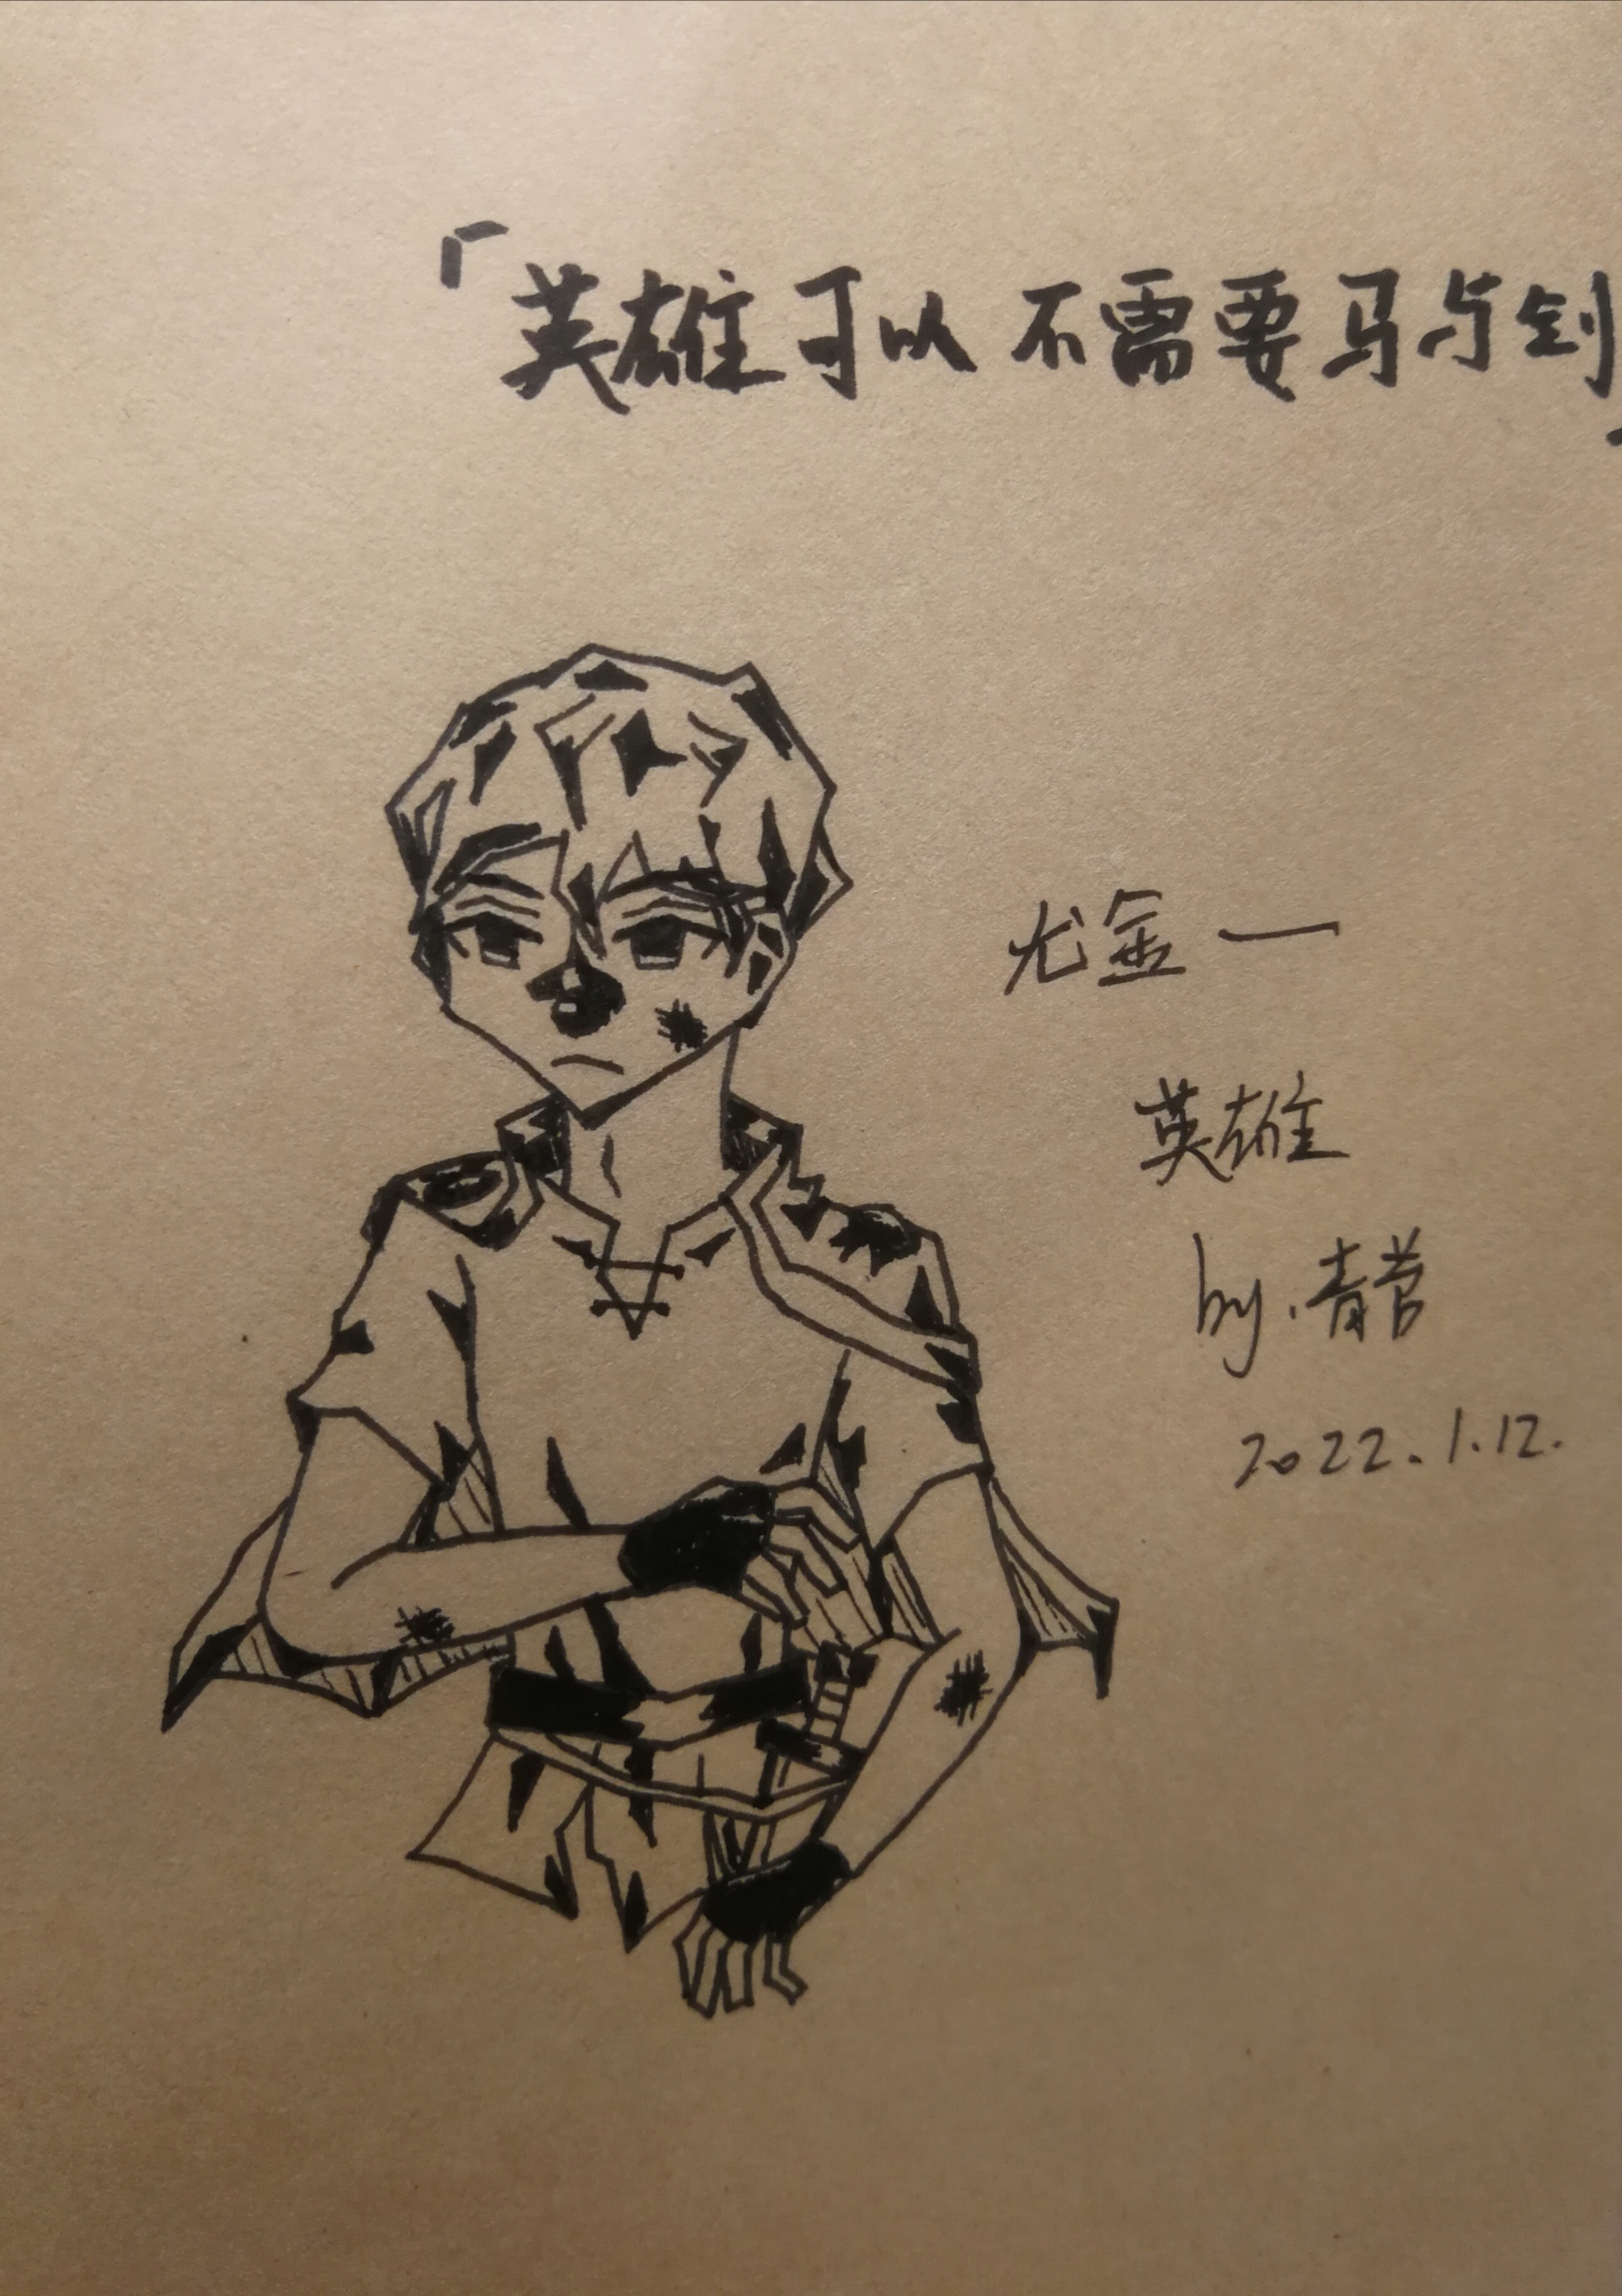 「英雄可以不需要马与剑」
尤金一
英雄
by.青菅
2022.1.12.